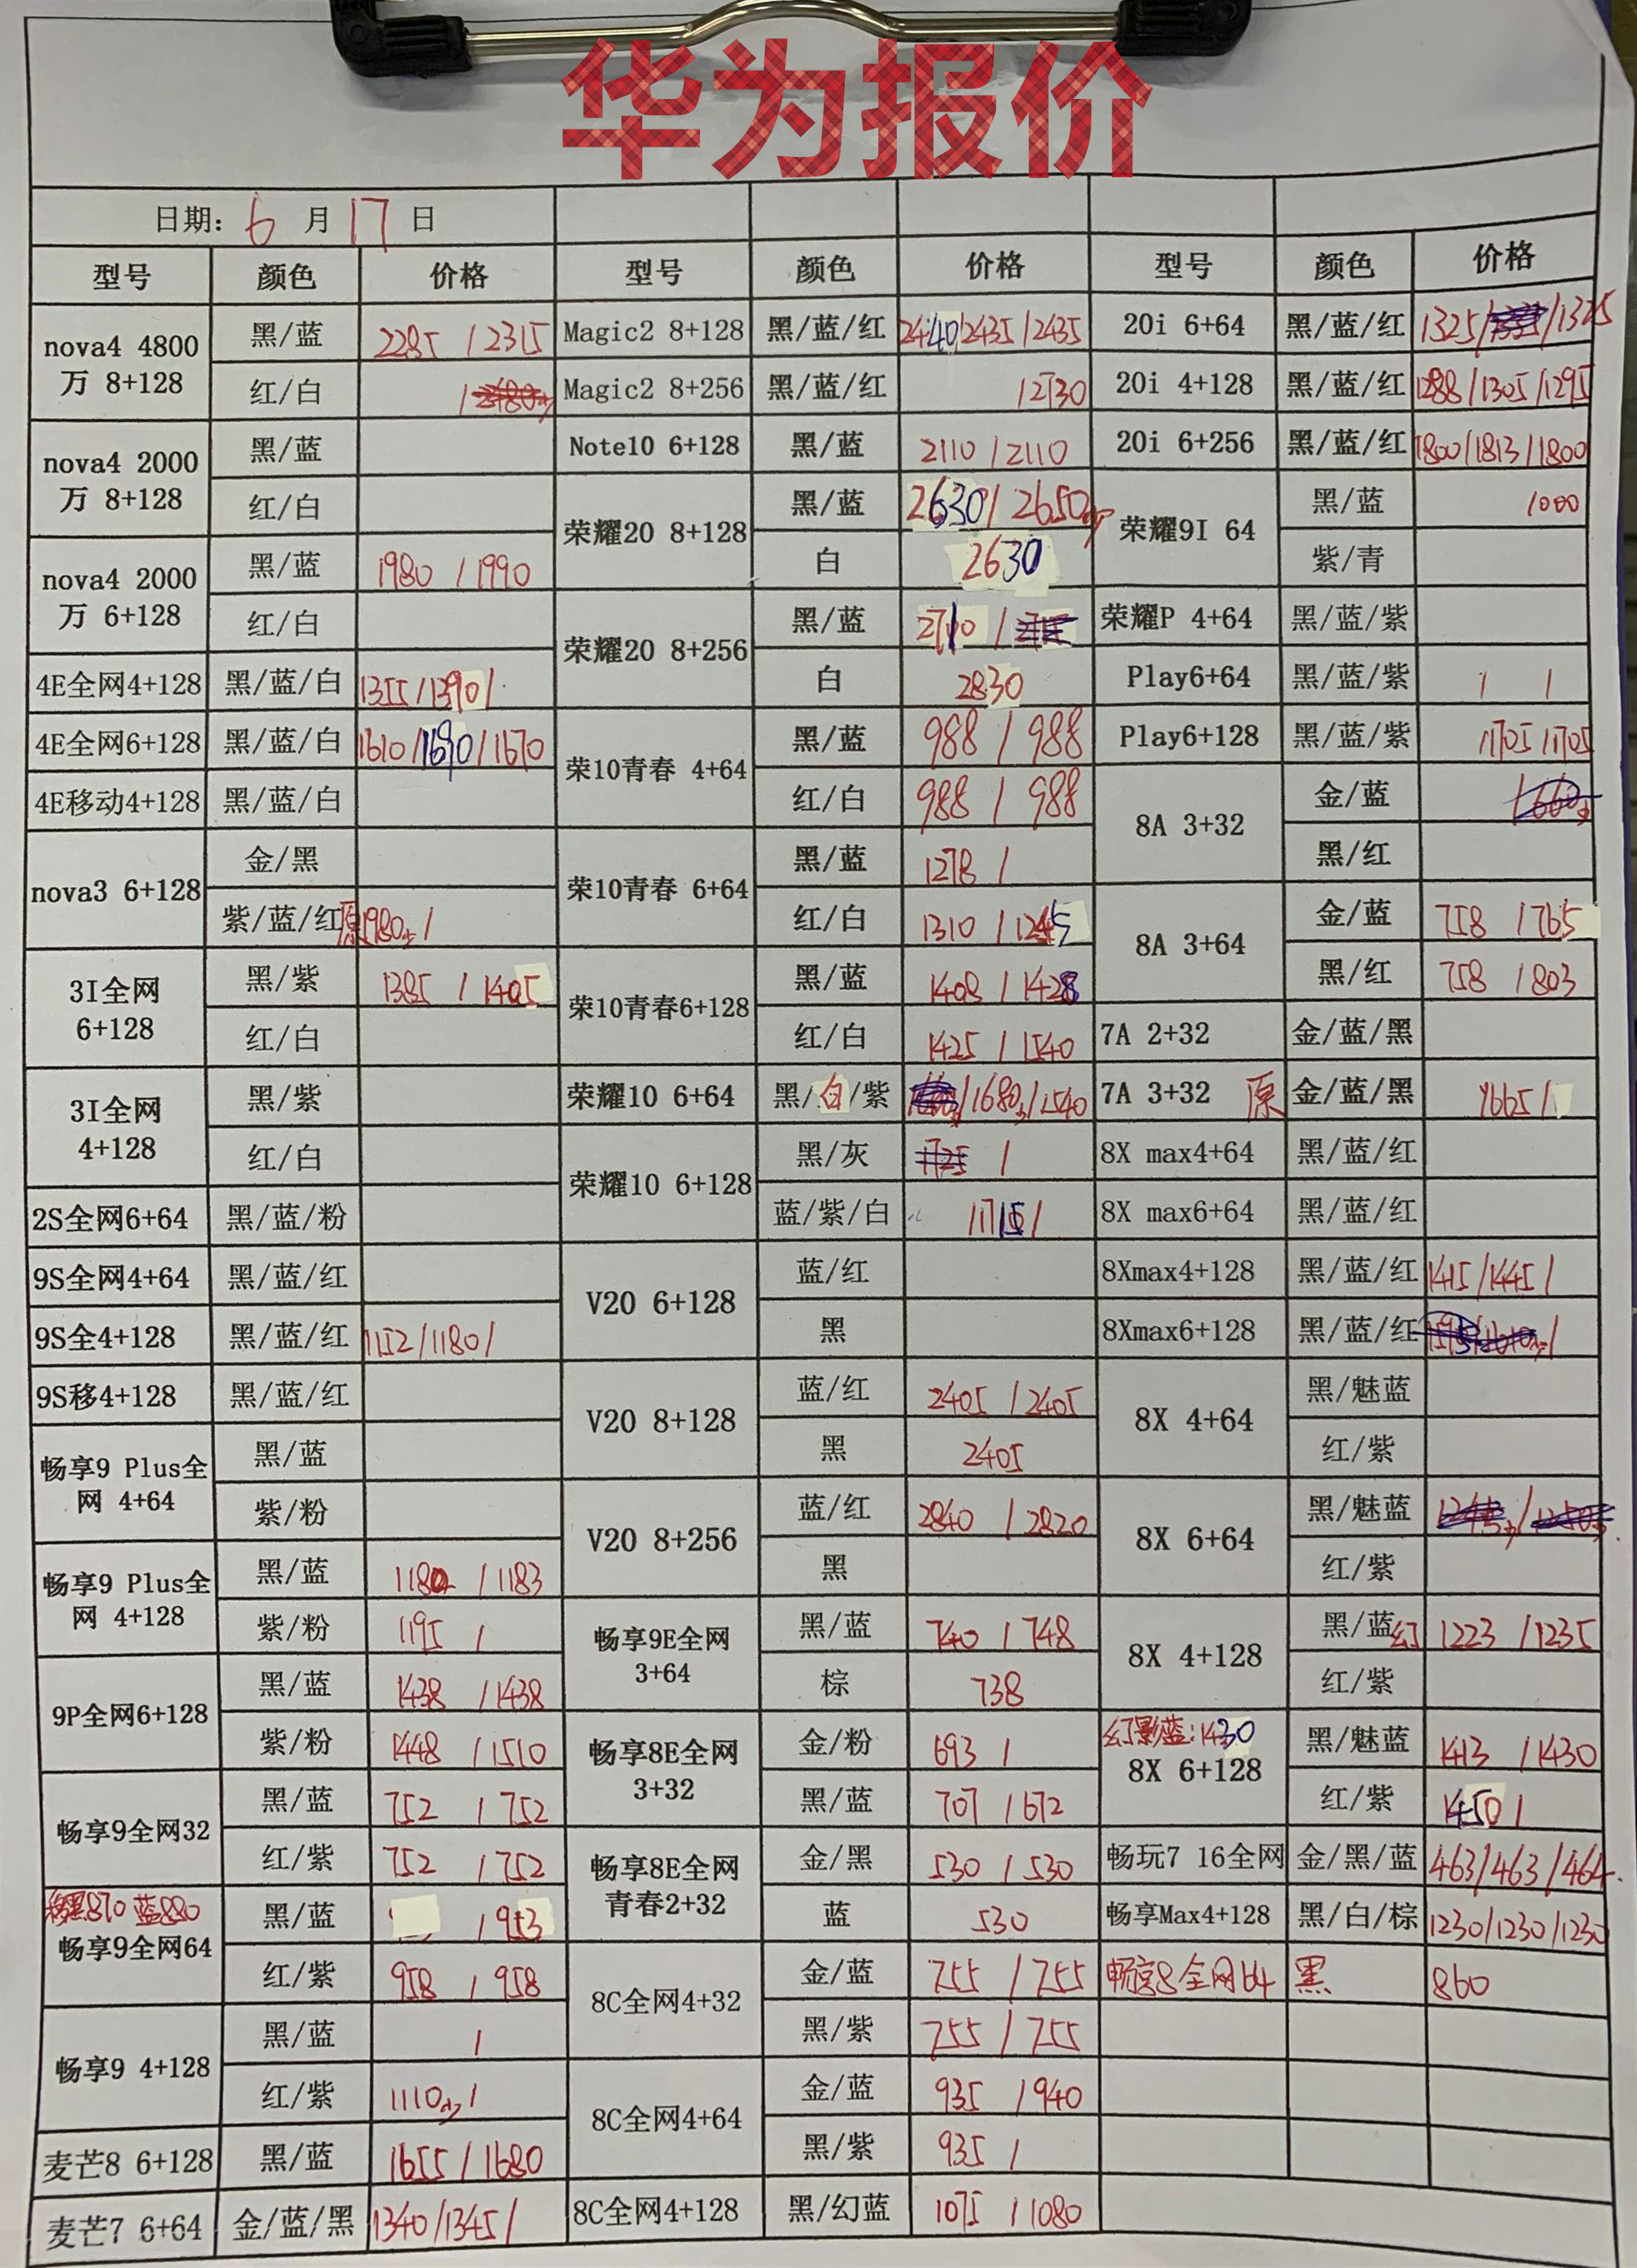 华为报价
日期: 6 月 17 日
型号 颜色 价格 型号 颜色 价格 型号 颜色 价格
nova4 4800万 8+128 黑/蓝 2285 / 2315 Magic2 8+128 黑/蓝/红 2440/2435/2435 20i 6+64 黑/蓝/红 1325/ /1325
红/白 / Magic2 8+256 黑/蓝/红 /2730 20i 4+128 黑/蓝/红 1288/1305/1295
nova4 2000万 8+128 黑/蓝 Note10 6+128 黑/蓝 2110 / 2110 20i 6+256 黑/蓝/红 1800/1813/1800
红/白 荣耀20 8+128 黑/蓝 2630/ 2650 荣耀9I 64 黑/蓝 1000
nova4 2000万 6+128 黑/蓝 1980 / 1990 白 2630 紫/青
红/白 荣耀20 8+256 黑/蓝 荣耀P 4+64 黑/蓝/紫
4E全网4+128 黑/蓝/白 1355/1390/ 白 2830 Play6+64 黑/蓝/紫 / /
4E全网6+128 黑/蓝/白 1610/1690/1670 荣10青春 4+64 黑/蓝 988 / 988 Play6+128 黑/蓝/紫 /1705/1705
4E移动4+128 黑/蓝/白 红/白 988 / 988 8A 3+32 金/蓝
nova3 6+128 金/黑 荣10青春 6+64 黑/蓝 1278 / 黑/红
紫/蓝/红 原1980 / 红/白 1310 / 1245 8A 3+64 金/蓝 758 / 765
3I全网 6+128 黑/紫 1385 / 1405 荣10青春6+128 黑/蓝 1408 / 1428 黑/红 758 / 803
红/白 红/白 1425 / 1540 7A 2+32 金/蓝/黑
3I全网 4+128 黑/紫 荣耀10 6+64 黑/白/紫 /1680/1540 7A 3+32 原 金/蓝/黑 /665/
红/白 荣耀10 6+128 黑/灰 1725 / 8X max4+64 黑/蓝/红
2S全网6+64 黑/蓝/粉 蓝/紫/白 /1715/ 8X max6+64 黑/蓝/红
9S全网4+64 黑/蓝/红 V20 6+128 蓝/红 8Xmax4+128 黑/蓝/红 1415/1445/
9S全4+128 黑/蓝/红 1152/1180/ 黑 8Xmax6+128 黑/蓝/红
9S移4+128 黑/蓝/红 V20 8+128 蓝/红 2405 / 2405 8X 4+64 黑/魅蓝
畅享9 Plus全网 4+64 黑/蓝 黑 2405 红/紫
紫/粉 V20 8+256 蓝/红 2840 / 2820 8X 6+64 黑/魅蓝
畅享9 Plus全网 4+128 黑/蓝 / 1183 黑 红/紫
紫/粉 1195 / 畅享9E全网 3+64 黑/蓝 740 / 748 8X 4+128 黑/蓝幻 1223 / 1235
9P全网6+128 黑/蓝 1438 / 1438 棕 738 红/紫
紫/粉 1448 / 1510 畅享8E全网 3+32 金/粉 693 / 幻影蓝:1430 8X 6+128 黑/魅蓝 1413 / 1430
畅享9全网32 黑/蓝 752 / 752 黑/蓝 707 / 672 红/紫 1450 /
红/紫 752 / 752 畅享8E全网青春2+32 金/黑 530 / 530 畅玩7 16全网 金/黑/蓝 463/463/464
移黑870 蓝880
畅享9全网64 黑/蓝 / 953 蓝 530 畅享Max4+128 黑/白/棕 1230/1230/1230
红/紫 958 / 958 8C全网4+32 金/蓝 755 / 755 畅享8全网64 黑 860
畅享9 4+128 黑/蓝 / 黑/紫 755 / 755
红/紫 1110 / 8C全网4+64 金/蓝 935 / 940
麦芒8 6+128 黑/蓝 1655 / 1680 黑/紫 935 /
麦芒7 6+64 金/蓝/黑 1340/1345/ 8C全网4+128 黑/幻蓝 1075 / 1080